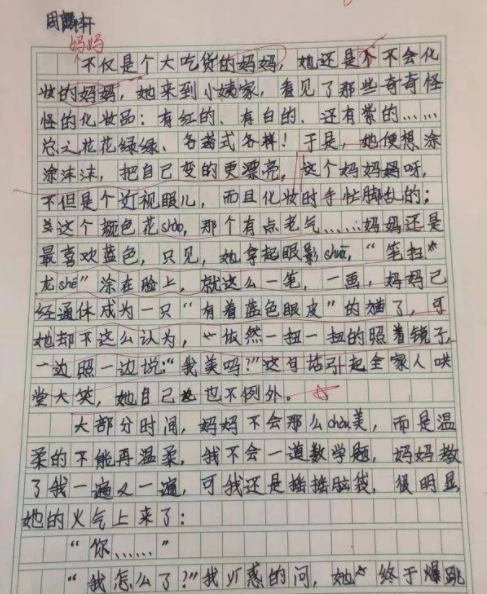 周颢轩
妈妈
不仅是个大吃货的妈妈，她还是个不会化
妆的妈妈，她来到小姨家，看见了那些奇奇怪
怪的化妆品：有红的、有白的、还有紫的……
总之花花绿绿、各式各样！于是，她便想涂
涂沫沫，把自己变的更漂亮，这个妈妈呀，
不但是个近视眼儿，而且化妆时手忙脚乱的；
这个颜色花shào，那个有点老气……妈妈还是
最喜欢蓝色，只见，她拿起眼影shuā，“笔扫
龙shé”涂在脸上，就这么一笔，一画，妈妈已
经通体成为一只“有着蓝色眼皮”的猫了，可
她却不这么认为，依然一扭一扭的照着镜子，
一边照一边说：“我美吗？”这句话引起全家人哄
堂大笑，她自己也不例外。
大部分时间，妈妈不会那么chòu美，而是温
柔的不能再温柔，我不会一道数学题，妈妈教
了我一遍又一遍，可我还是摇摇脑袋，很明显
她的火气上来了：
“你……”
“我怎么了？”我疑惑的问，她终于爆跳